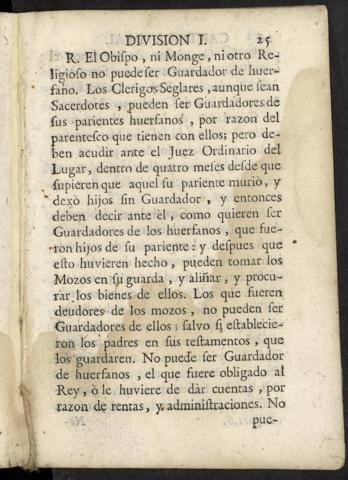 DIVISION I. 25
R. El Obispo, ni Monge, ni otro Re-
ligioso no puede ser Guardador de huer-
fano. Los Clerigos Seglares, aunque sean
Sacerdotes, pueden ser Guardadores de
sus parientes huerfanos, por razon del
parentesco que tienen con ellos; pero de-
ben acudir ante el Juez Ordinario del
Lugar, dentro de quatro meses desde que
supieren que aquel su pariente murio, y
dexò hijos sin Guardador, y entonces
deben decir ante èl, como quieren ser
Guardadores de los huerfanos, que fue-
ron hijos de su pariente: y despues que
esto huvieren hecho, pueden tomar los
Mozos en su guarda, y aliñar, y procu-
rar los bienes de ellos. Los que fueren
deudores de los mozos, no pueden ser
Guardadores de ellos; salvo si establecie-
ron los padres en sus testamentos, que
los guardaren. No puede ser Guardador
de huerfanos, el que fuere obligado al
Rey, ò le huviere de dàr cuentas, por
razon de rentas, y administraciones. No
pue-